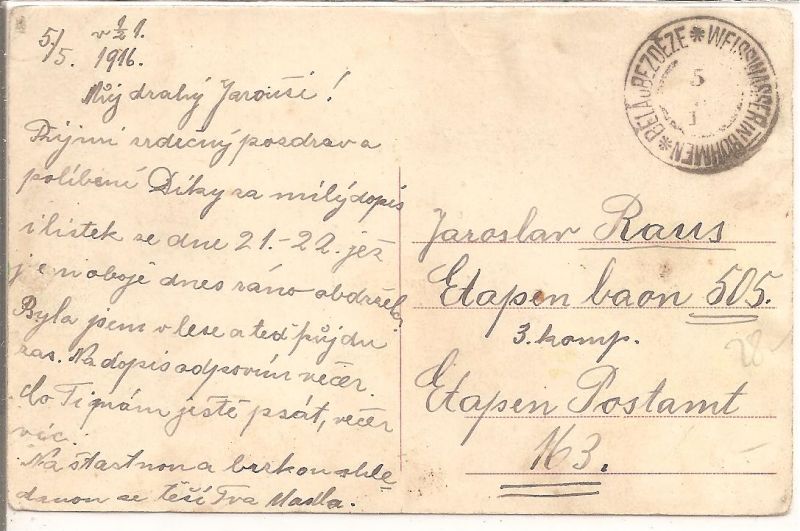 5./5. v ½ 1.
1916.
Můj drahý Jarouši!
Přijmi srdečný pozdrav a
políbení Díky za milý dopis
i lístek ze dne 21.-22. jež
jsem obojé dnes ráno obdržela.
Byla jsem v lese a teď půjdu
zas. Na dopis odpovím večer.
Co Ti mám ještě psát, večer
víc.
Na šťastnou a brzkou shle-
danou se těší Tvá
Jaroslav Raus
Etapen baon 505.
3. komp.
Etapen Postamt
163.
28-
BĚLÁ U BEZDĚZE * WEISSWASSER IN BÖHMEN *
5